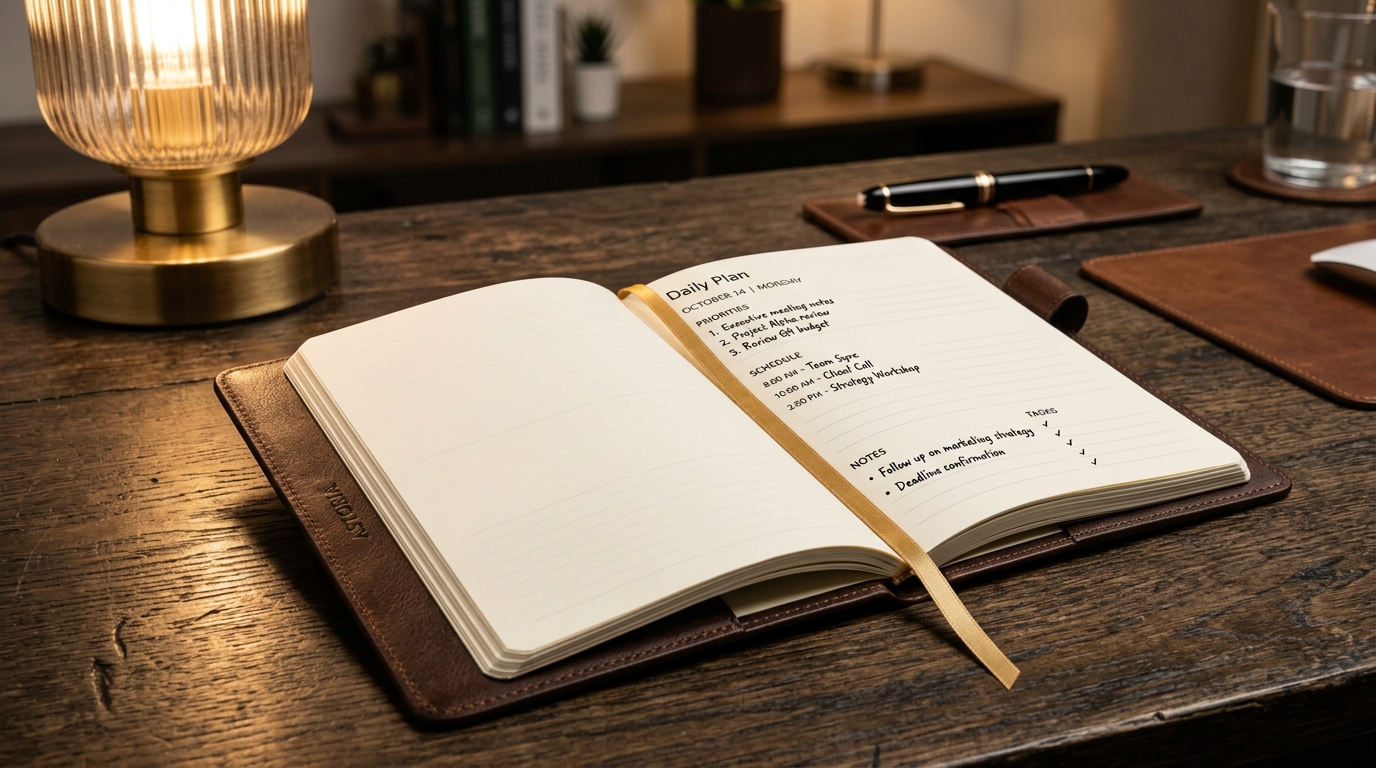 Daily Plan
OCTOBER 14 | MORDAY
PRIORITIES
1. Executive meeting notes
2. Project Alpha review
3. Roview budget
SCHEDULE
8:00 AM – Team Syre
10:00 AM – Cheat Call
2:80 PM – Strategy Workshap
NOTES
• Follow up on markeling strategy
• Deadlins confirmation
TADES